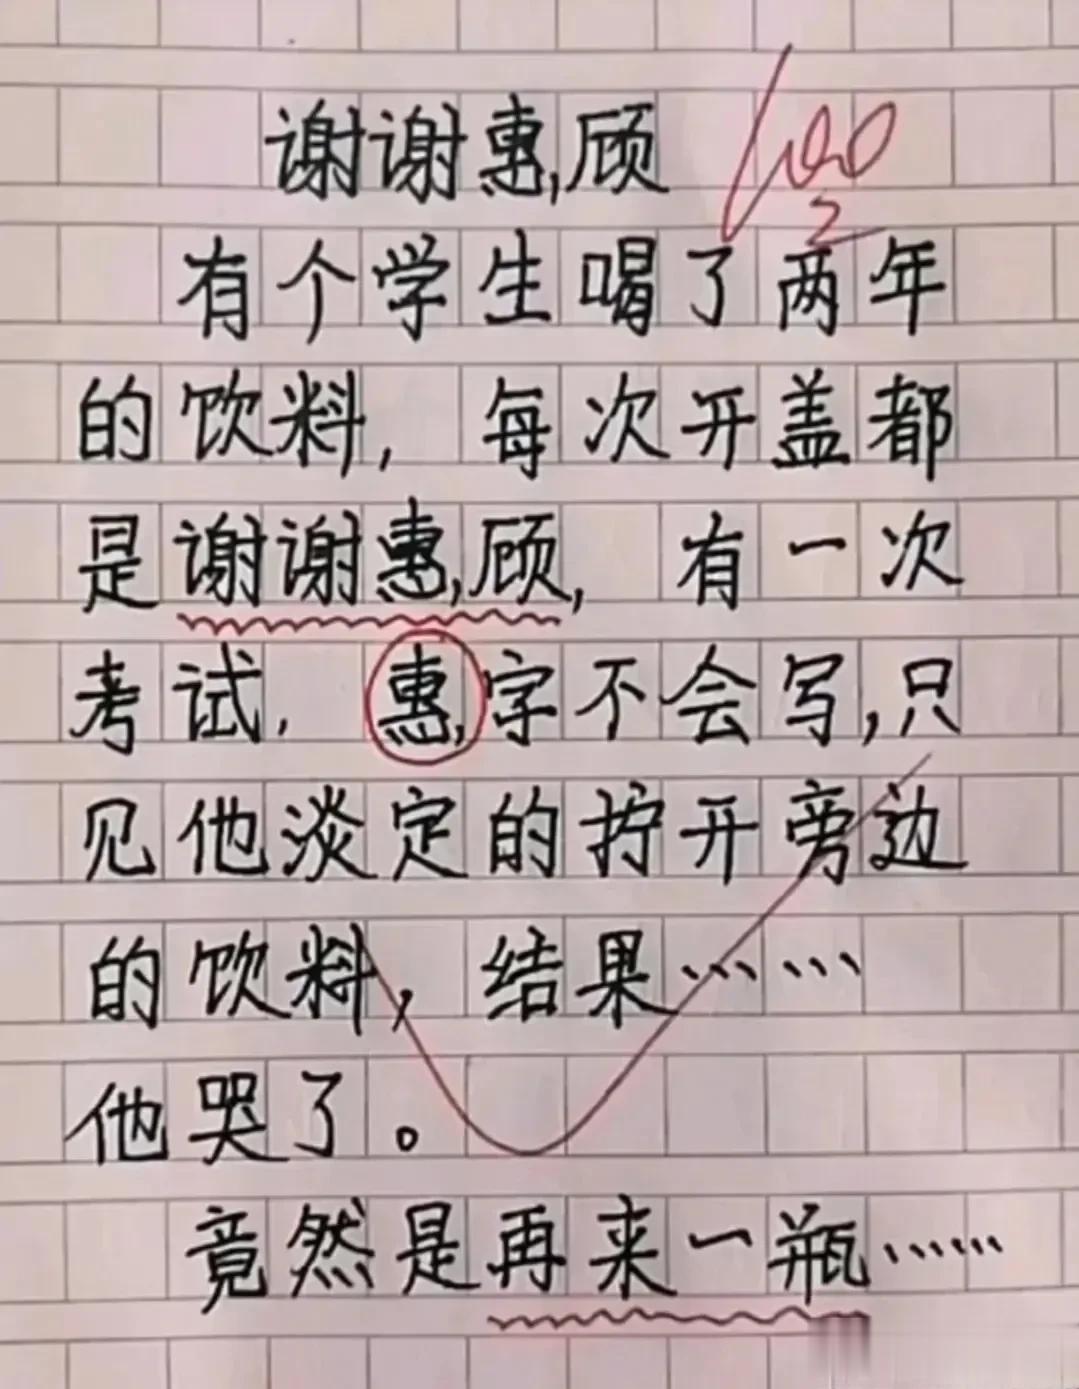 谢谢惠顾
100
2
有个学生喝了两年
的饮料，每次开盖都
是谢谢惠顾，有一次
考试，惠字不会写，只
见他淡定的拧开旁边
的饮料，结果……
他哭了。
竟然是再来一瓶……